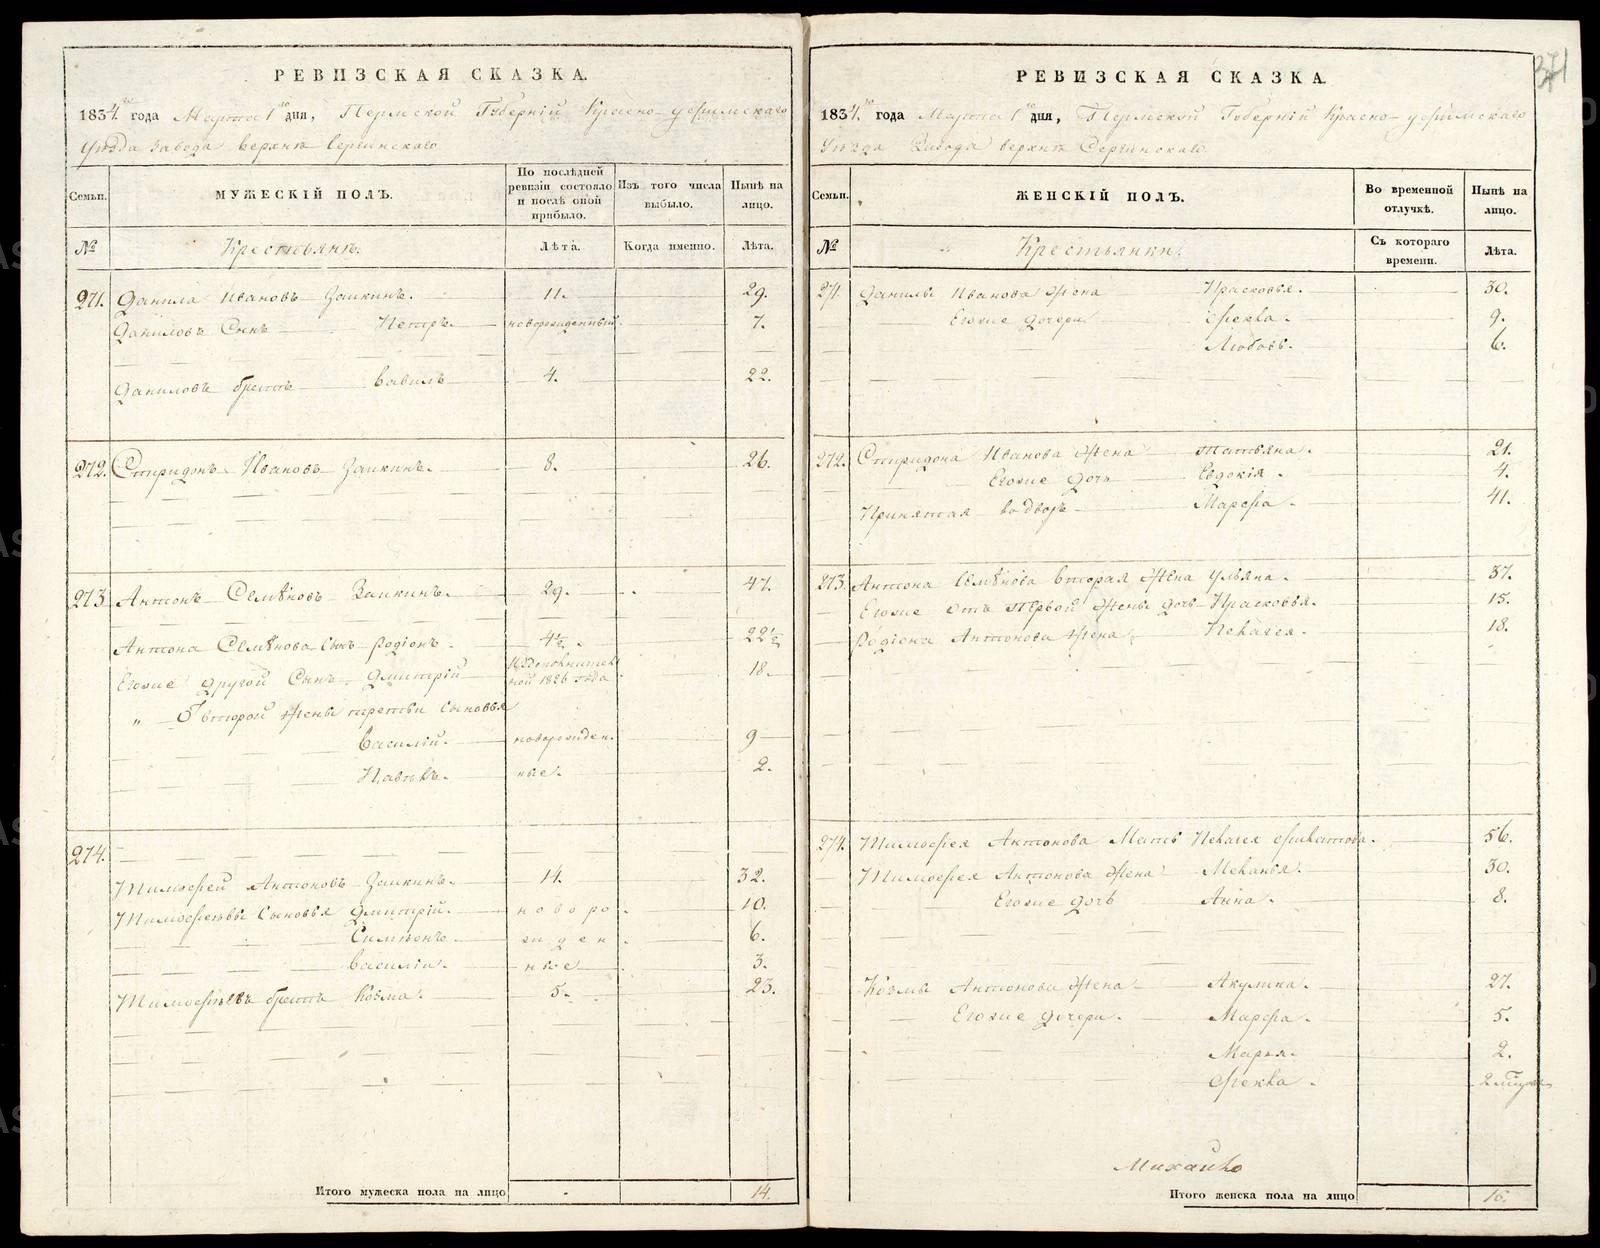 РЕВИЗСКАЯ СКАЗКА.
1834го года Марта 1го дня, Пермской Губерніи Красно-уфимскаго
Уѣзда Завода Верхне Сергинскаго
Семьи.
МУЖЕСКІЙ ПОЛЪ.
По послѣдней ревизіи состояло и послѣ оной прибыло.
Изъ того числа выбыло.
Нынѣ на лицо.
№
Крестьянъ.
Лѣта.
Когда именно.
Лѣта.
271. Данила Ивановъ Заикинъ. 11. 29.
Даниловъ Сынъ Петръ. новорожденный. 7.
Даниловъ братъ Вавилъ 4. 22.
272. Спиридонъ Ивановъ Заикинъ. 8. 26.
273. Антонъ Семѣновъ Заикинъ. 29. 47.
Антона Семѣнова Сынъ Родіонъ. 4½. 22½
Егоже другой Сынъ Дмитрій 18.
ной 1826 года
" От второй жены третьи Сыновья
Василій. новорожден. 9
Павелъ. ные. 2.
274.
Тимофей Антоновъ Заикинъ. 14. 32.
Тимофеевы Сыновья Дмитрій. новоро 10.
Симеонъ. жден 6.
Василій. ные 3.
Тимофеевъ братъ Козма. 5. 23.
Итого мужеска пола на лицо 14.
371
РЕВИЗСКАЯ СКАЗКА.
1834го года Марта 1го дня, Пермской Губерніи Красно-уфимскаго
Уѣзда Завода Верхне Сергинскаго.
Семьи.
ЖЕНСКІЙ ПОЛЪ.
Во временной отлучкѣ.
Нынѣ на лицо.
№
Крестьянки.
Съ котораго времени.
Лѣта.
271. Данилы Иванова жена Прасковья. 30.
Егоже дочери Фекла. 9.
Любовь. 6.
272. Спиридона Иванова жена Татьяна. 21.
Егоже дочь Евдокія. 4.
Принятая во дворъ Марфа. 41.
273. Антона Семѣнова вторая жена Ульяна. 37.
Егоже отъ первой жены дочь Прасковья. 15.
Родіона Антонова жена Пелагея. 18.
274. Тимофея Антонова Мать Пелагея Филатова. 56.
Тимофея Антонова жена Меланья. 30.
Егоже дочь Анна. 8.
Козмы Антонова жена Акулина. 27.
Егоже дочери. Марфа. 5.
Марья. 2.
Фекла.
Михайло
Итого женска пола на лицо 16.